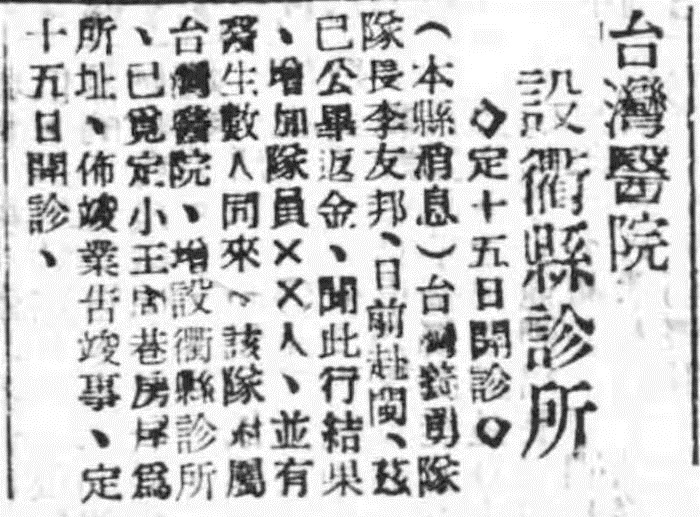 台灣醫院
設衢縣診所
◇定十五日開診◇
（本縣消息）台灣義勇隊
隊長李友邦、日前赴閩、茲
已公畢返金、聞此行結果
、增加隊員××人、並有
醫生數人同來、該隊附屬
台灣醫院、增設衢縣診所
、已覓定小王宮巷房屋為
所址、佈竣業告竣事、定
十五日開診、